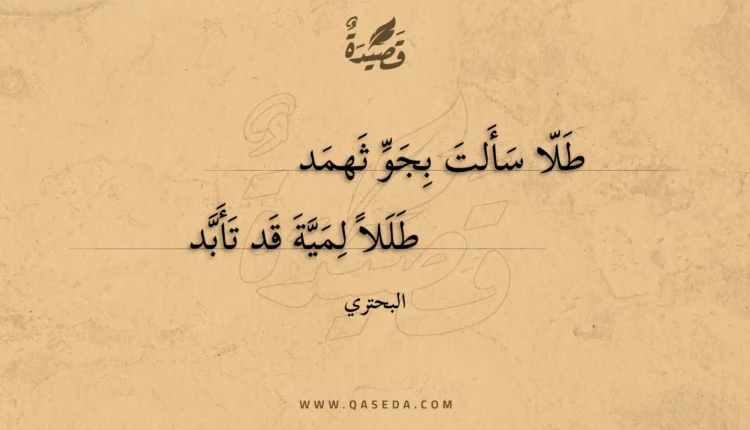 قَصِيْدَةٌ
طَلّا سَأَلتَ بِجَوِّ ثَهمَد
طَلَلاً لِمَيَّةَ قَد تَأَبَّد
البحتري
WWW.QASEDA.COM